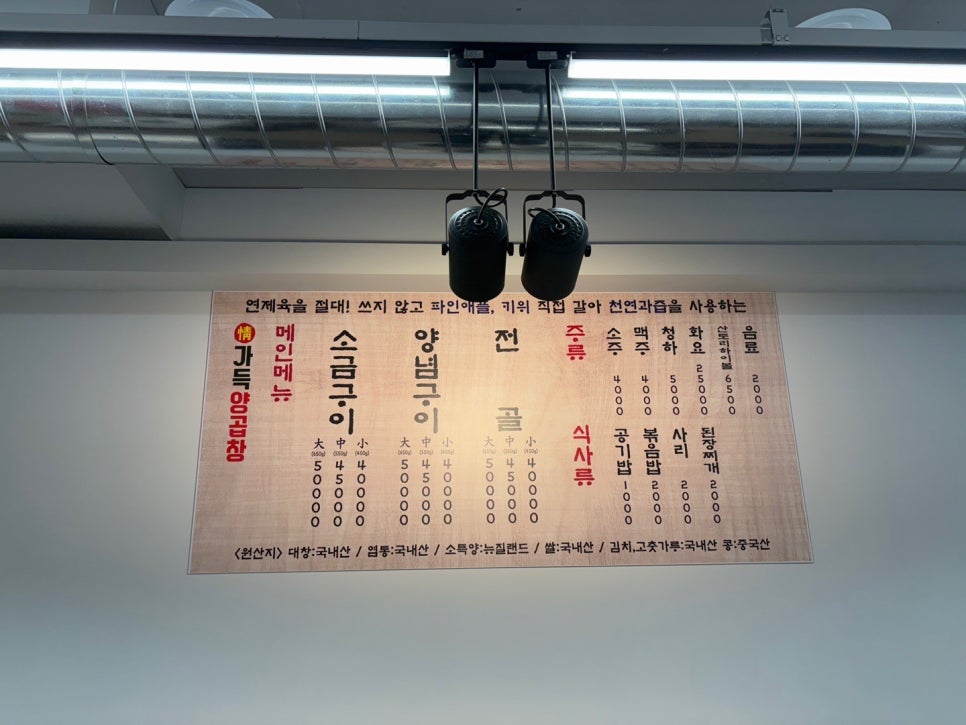 연제육을 절대! 쓰지 않고 파인애플, 키위 직접 갈아 천연과즙을 사용하는
情 가득양곱창
메인메뉴
소금구이
大 (650g) 50000
中 (550g) 45000
小 (400g) 40000
양념구이
大 (650g) 50000
中 (550g) 45000
小 (400g) 40000
전골
大 (650g) 50000
中 (550g) 45000
小 (400g) 40000
주류
소주 4000
맥주 4000
청하 5000
화요 25000
산토리하이볼 6500
음료 2000
식사류
공기밥 1000
볶음밥 2000
사리 2000
된장찌개 2000
<원산지> 대창:국내산 / 염통:국내산 / 소특양:뉴질랜드 / 쌀:국내산 / 김치,고춧가루:국내산 콩:중국산